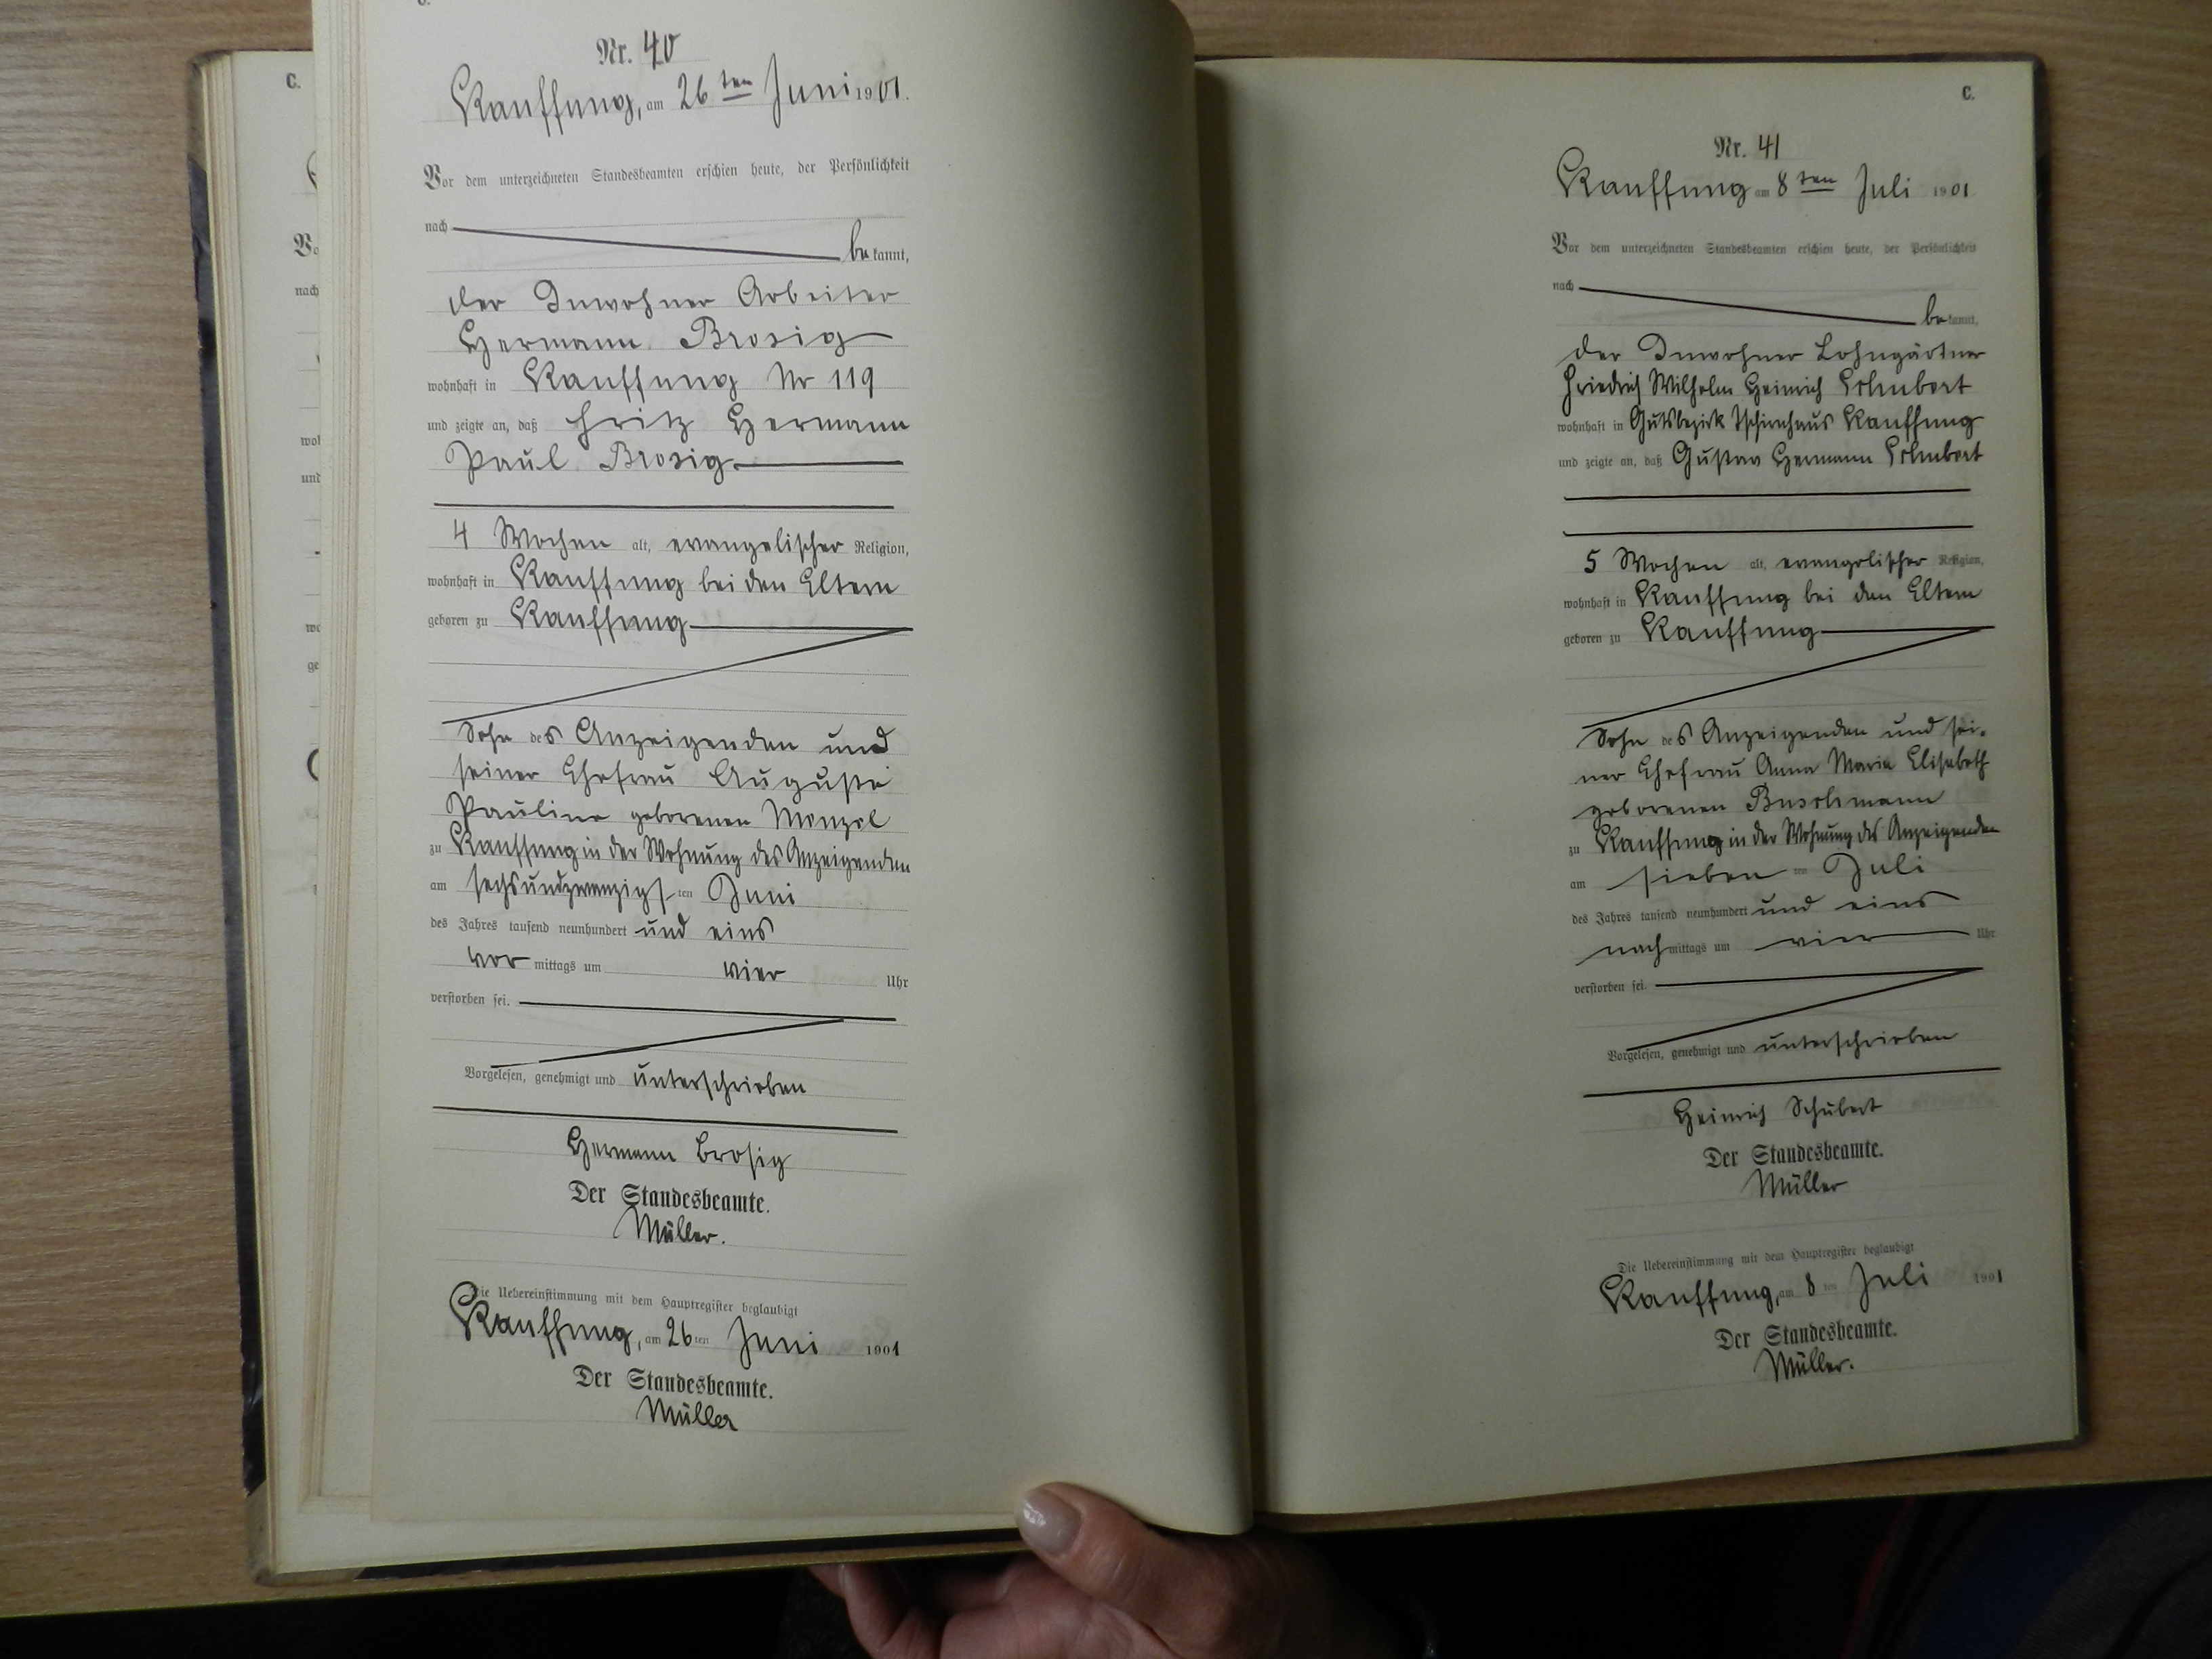 C.
Nr. 40
Kauffung, am 26ten Juni 1901.
Vor dem unterzeichneten Standesbeamten erschien heute, der Persönlichkeit
nach bekannt,
der Inwohner Arbeiter
Hermann Brosig
wohnhaft in Kauffung Nr 119
und zeigte an, daß Fritz Hermann
Paul Brosig
4 Wochen alt, evangelischer Religion,
wohnhaft in Kauffung bei den Eltern
geboren zu Kauffung
Sohn des Anzeigenden und
seiner Ehefrau Auguste
Pauline geborenen Menzel
zu Kauffung in der Wohnung des Anzeigenden
am sechsundzwanzigsten Juni
des Jahres tausend neunhundert und eins
vormittags um vier Uhr
verstorben sei.
Vorgelesen, genehmigt und unterschrieben
Hermann Brosig
Der Standesbeamte.
Müller.
Die Uebereinstimmung mit dem Hauptregister beglaubigt
Kauffung, am 26ten Juni 1901
Der Standesbeamte.
Müller
C.
Nr. 41
Kauffung am 8ten Juli 1901
Vor dem unterzeichneten Standesbeamten erschien heute, der Persönlichkeit
nach bekannt,
der Inwohner Lohngärtner
Friedrich Wilhelm Heinrich Schubert
wohnhaft in Gutsbezirk Tschirnhaus Kauffung
und zeigte an, daß Gustav Hermann Schubert
5 Wochen alt, evangelischer Religion,
wohnhaft in Kauffung bei den Eltern
geboren zu Kauffung
Sohn des Anzeigenden und sei-
ner Ehefrau Anna Maria Elisabeth
geborenen Buschmann
zu Kauffung in der Wohnung des Anzeigenden
am siebenten Juli
des Jahres tausend neunhundert und eins
nachmittags um vier Uhr
verstorben sei.
Vorgelesen, genehmigt und unterschrieben
Heinrich Schubert
Der Standesbeamte.
Müller
Die Uebereinstimmung mit dem Hauptregister beglaubigt
Kauffung, am 8ten Juli 1901
Der Standesbeamte.
Müller.